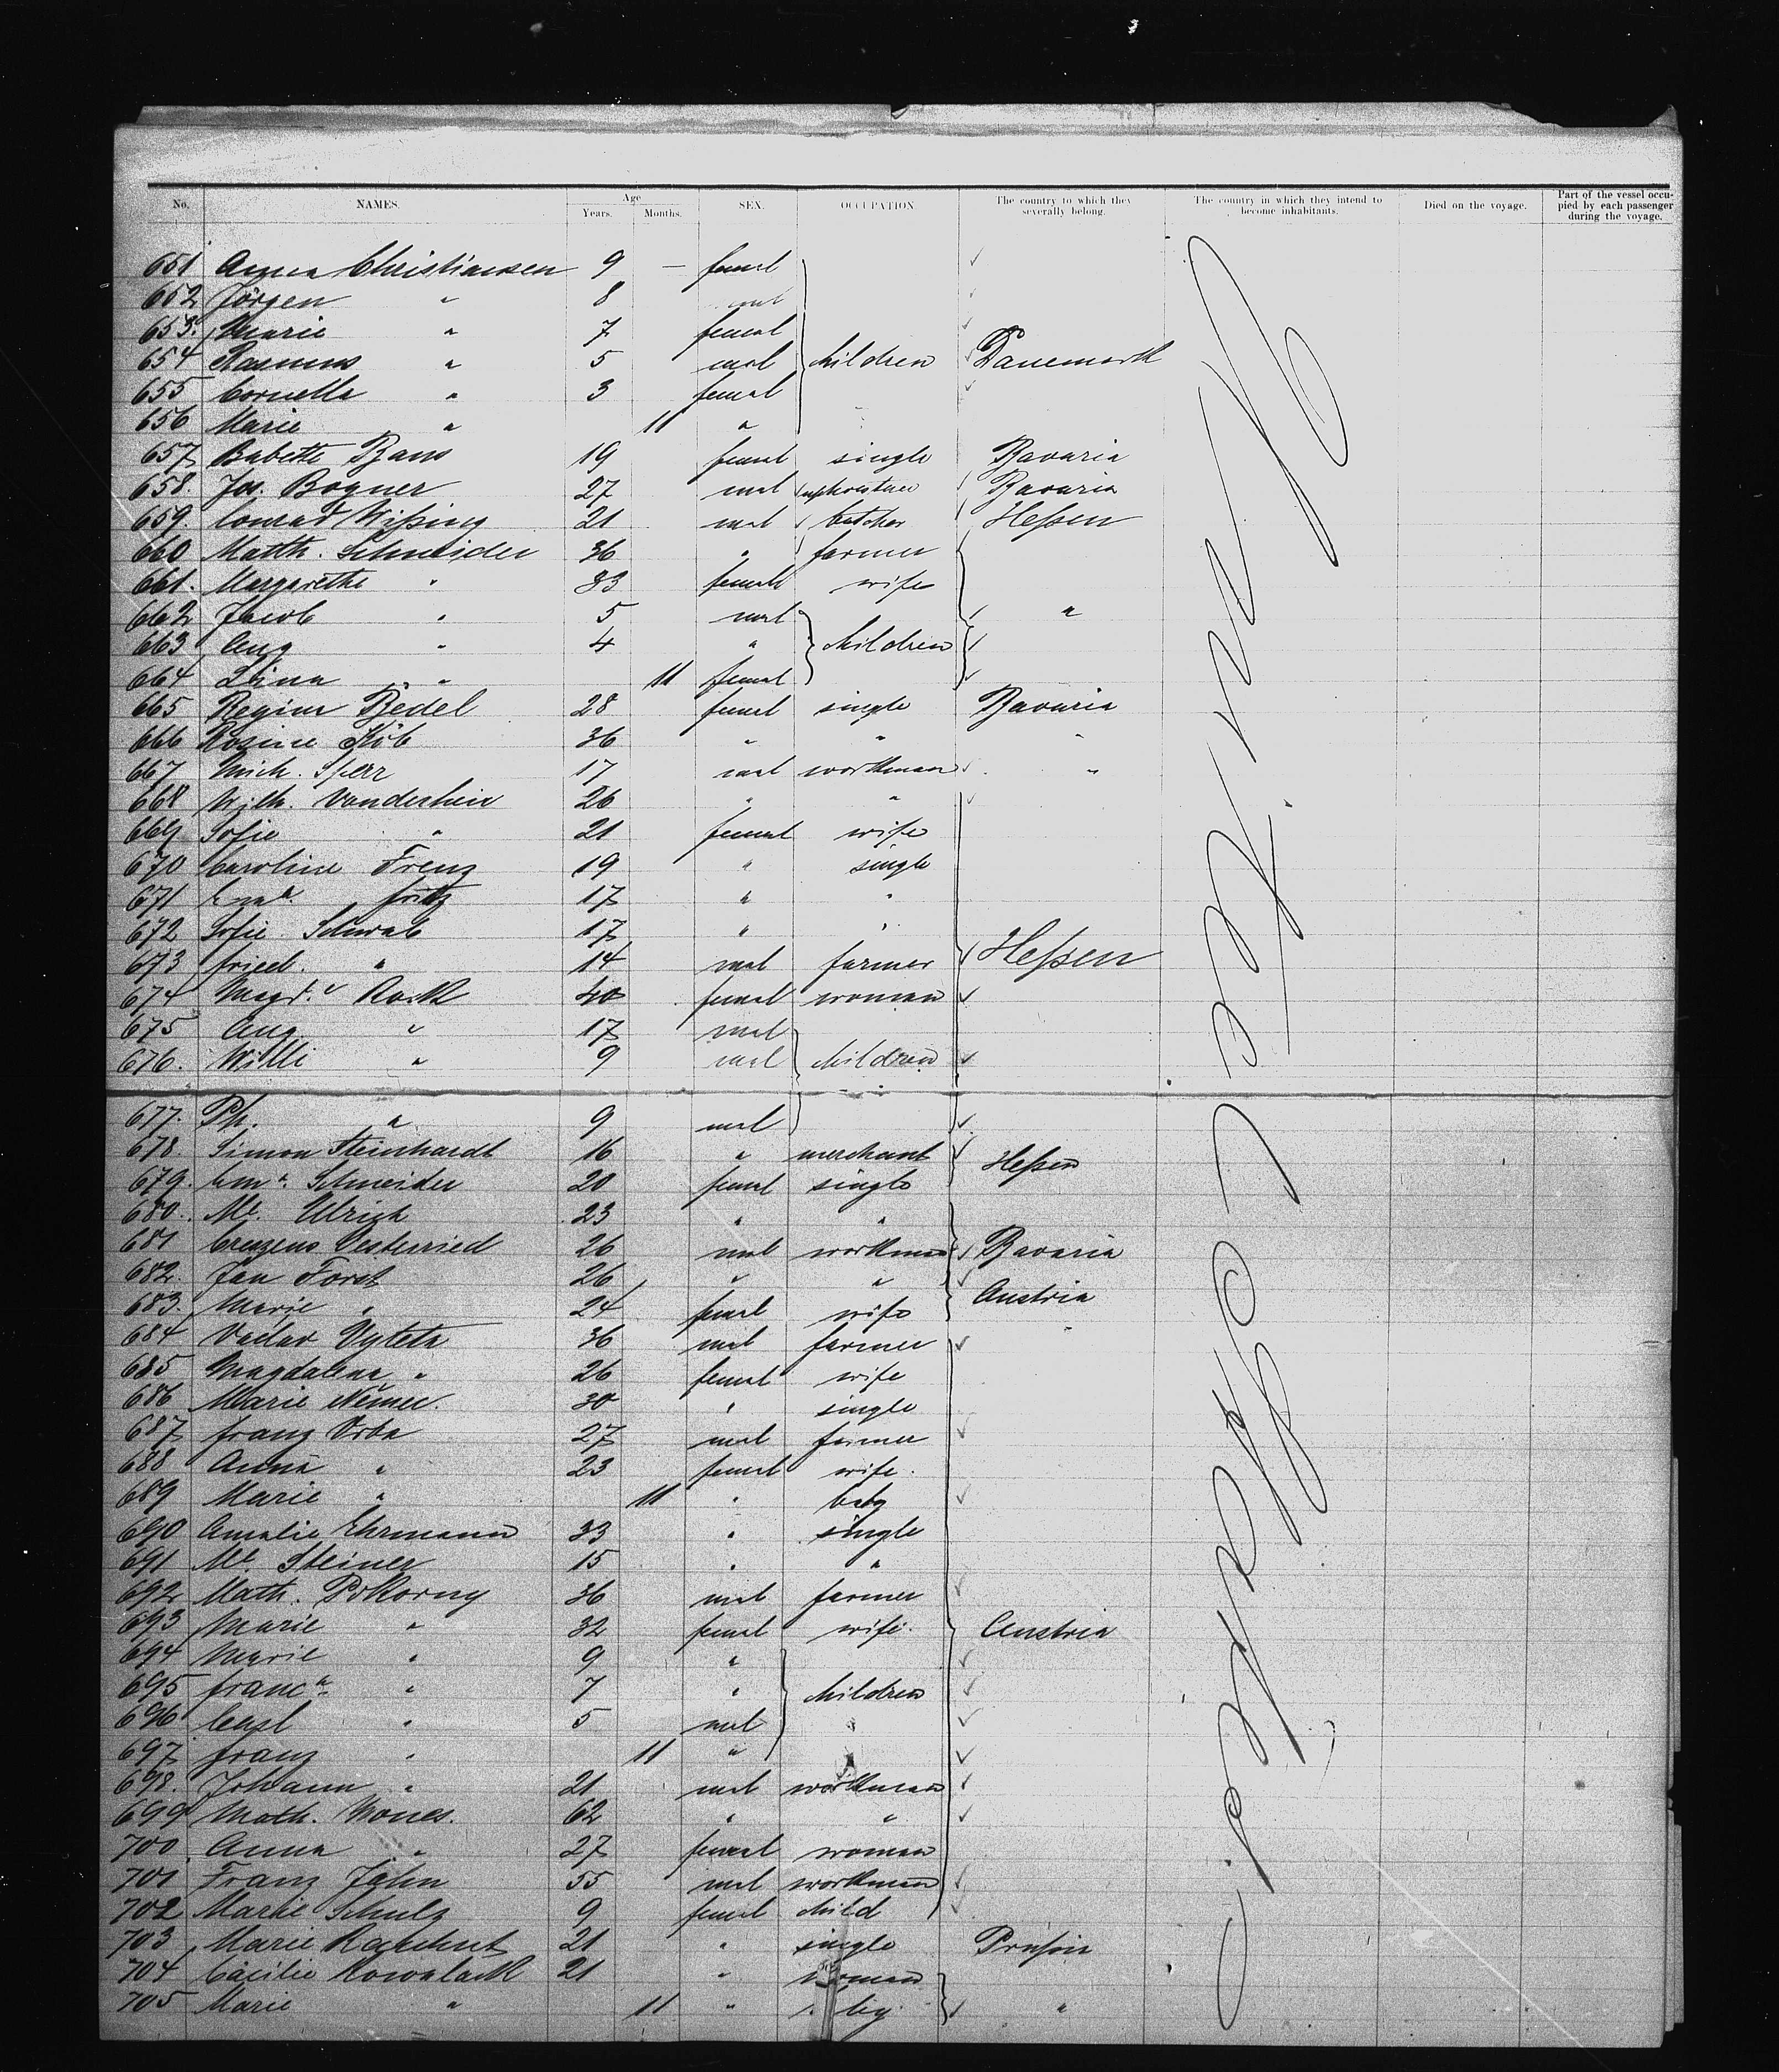 No. NAMES. Age Years. Months. SEX. OCCUPATION. The country to which they severally belong. The country in which they intend to become inhabitants. Died on the voyage. Part of the vessel occupied by each passenger during the voyage.
651 Anna Christiansen 9 — femal
652 Jörgen " 8 mal
653. Marie " 7 femal
654 Rasmus " 5 mal children Danemark
655 Cornella " 3 femal
656 Marie " 11 "
657 Babette 19 femal single Bavaria
658. Jos. Bogner 27 mal Bavaria
659. Conrad Wißing 21 mal butcher Heßen
660 Matth. Schneider 36 " farmer
661. Margarethe " 33 female wife
662 Jacob " 5 mal "
663 Aug " 4 " children
664 Lina " 11 femal
665 Regina Bedel 28 femal single Bavaria
666 Rosine Köb 36 " " "
667 Mich. Sperr 17 mal workman "
668 Wilh. Vonderhein 26 " "
669 Sofie " 21 femal wife
670 Caroline Frenz 19 " single
671 fritz 17 " "
672 Sofie Schwab 17 " "
673 fried. " 14 mal farmer Heßen
674 Magd. Rack 40 femal woman
675 Aug " 17 mal
676. Willi " 9 mal children
677. Ph. " 9 mal
678. Simon Steinhardt 16 " merchant Heßen
679. Schneider 20 femal single
680. Me. Ulrich 23 " "
681 Crezens Oesterried 26 mal workman Bavaria
682. Jan Forst 26 " " Austria
683. Marie " 24 femal wife
684 Vaclav Vyteta 36 mal farmer
685 Magdalena " 26 femal wife
686 Marie Němec. 30 " single
687 franz Vrba 27 mal farmer
688 Anna " 23 femal wife.
689 Marie " 11 " baby
690 Amalie Ehrmann 33 " single
691 Me Steiner 15 " "
692 Math. Pokorny 36 mal farmer
693 Marie " 32 femal wife. Austria
694 Marie " 9 "
695 franca " 7 " children
696 Carl " 5 mal
697 franz " 11 "
698. Johann " 21 mal workman
699 Math. Mones. 62 " "
700 Anna " 27 femal woman
701 Franz Jahn 55 mal workman
702 Marie Schulz 9 femal child
703 Marie 21 " single Prußin
704 Cäcilie Kowalack 21 " woman
705 Marie " 11 " "